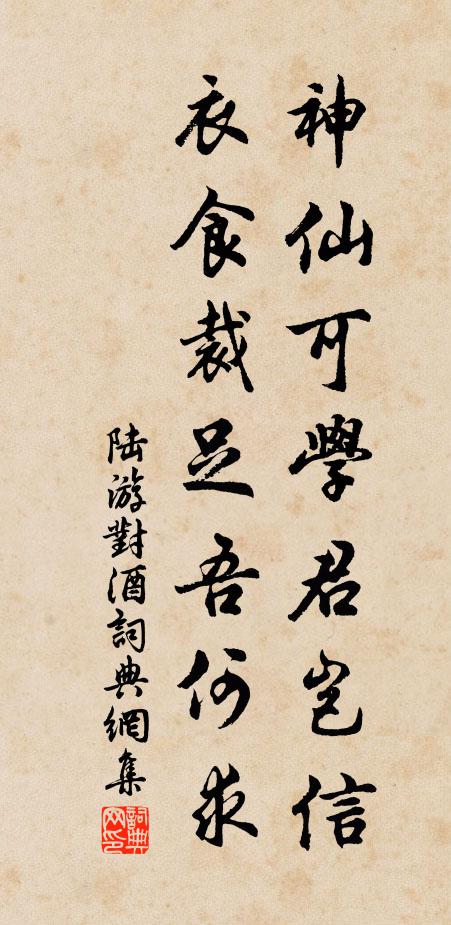 神仙可學君岂信
衣食裁足吾何求
陆游對酒詞典網集
詞典
网印